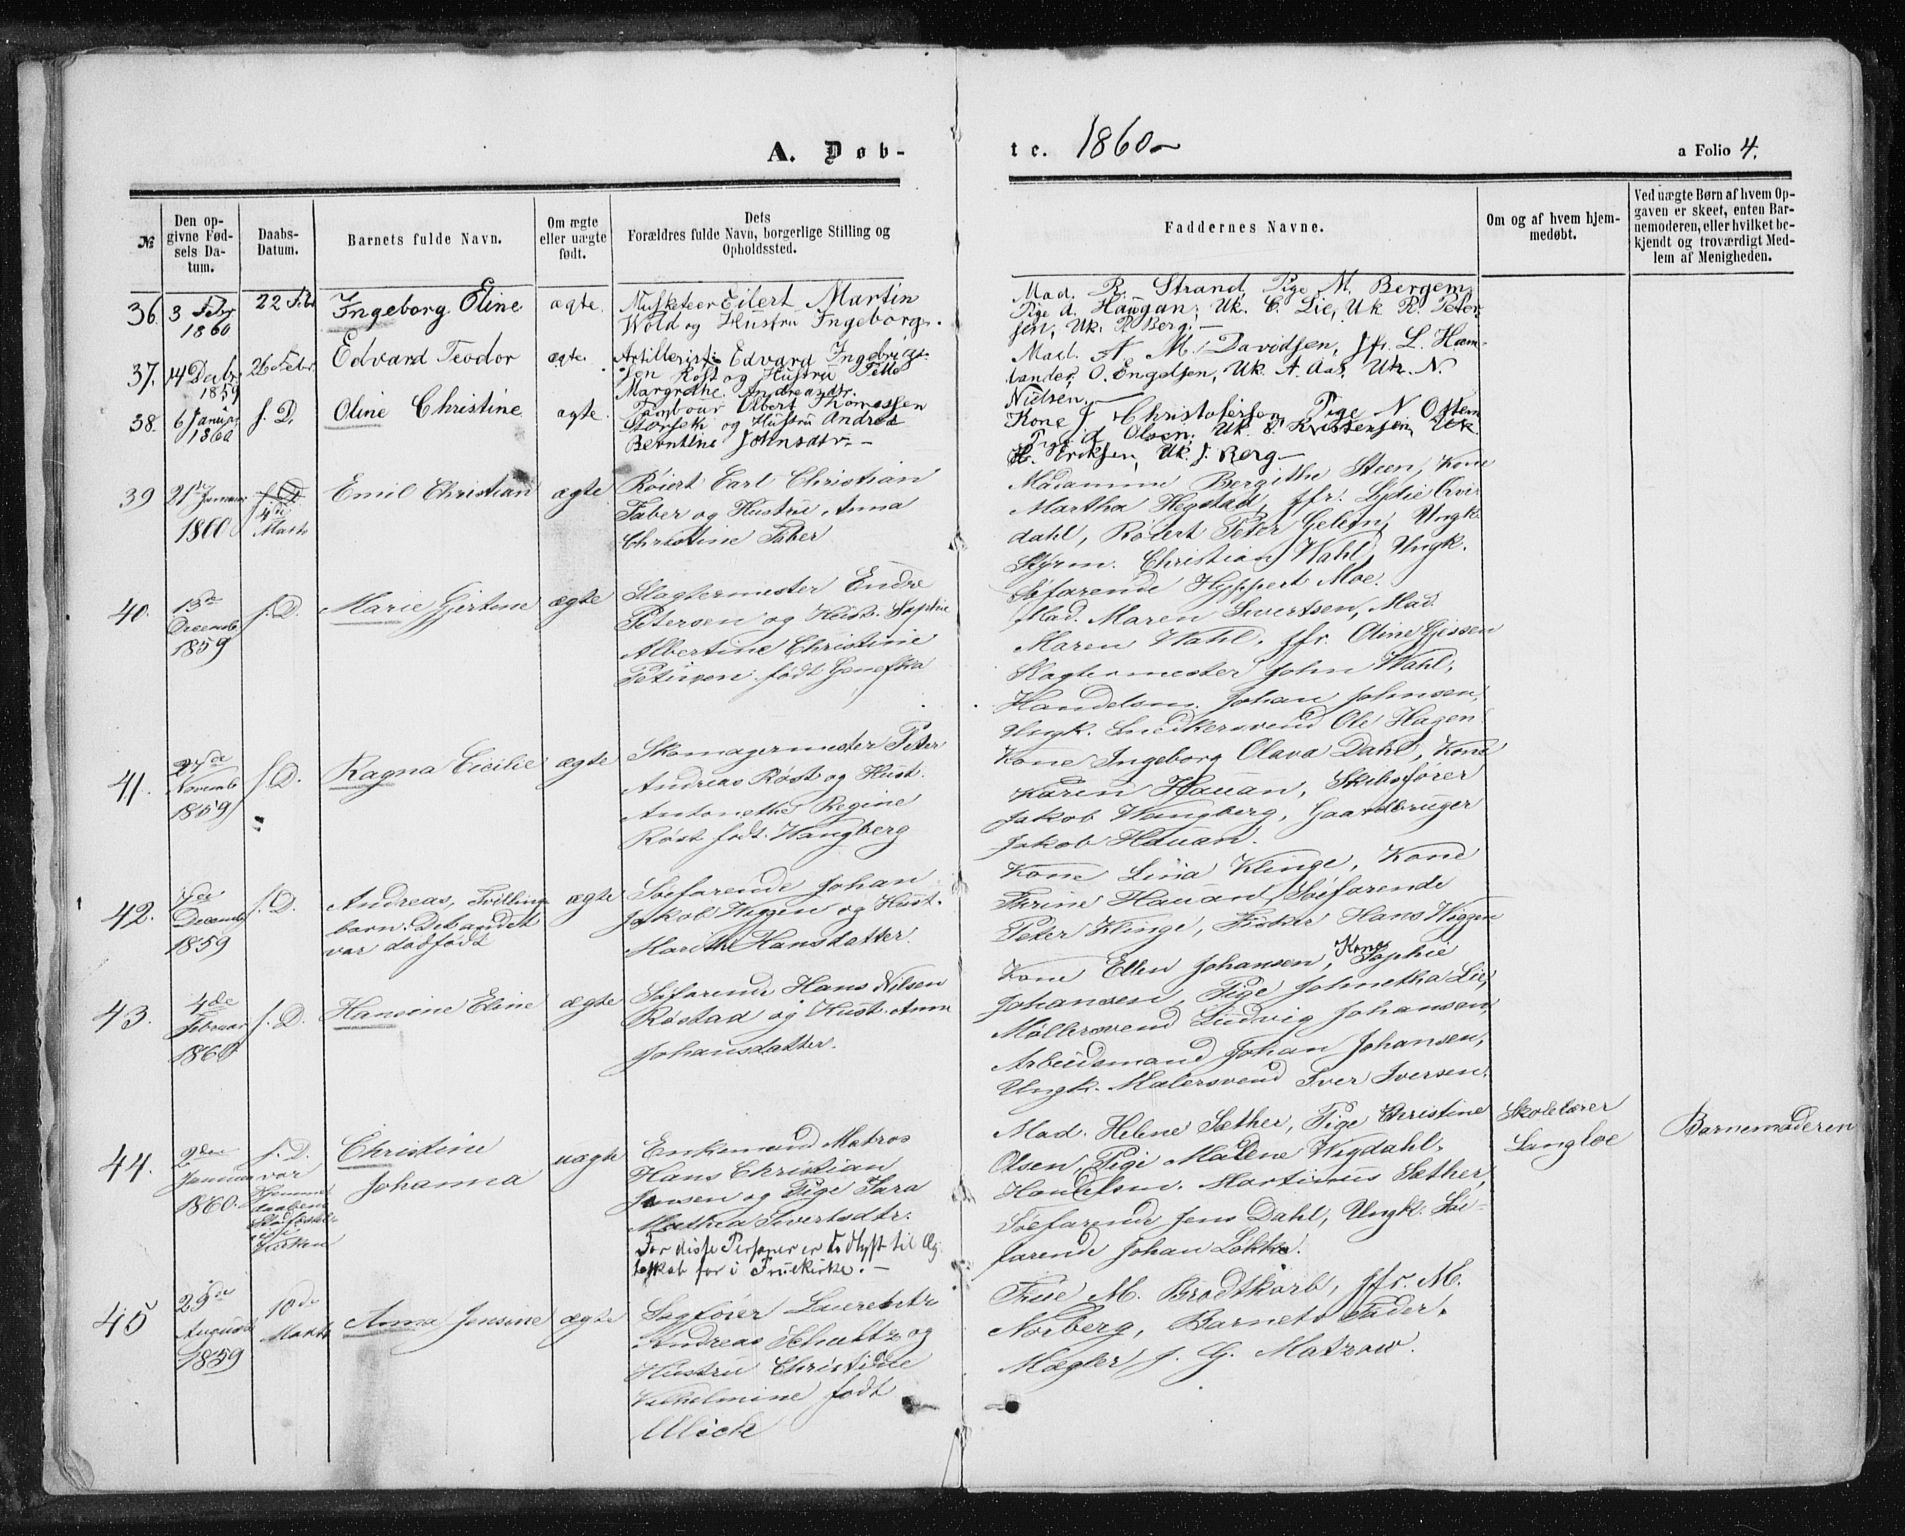 A. Døb-
te. 1860
a Folio 4.
№
Den op-
givne Fød-
sels Da-
tum.
Daabs-
Datum.
Barnets fulde Navn.
Om ægte
eller uægte
født.
Dets
Forældres fulde Navn, borgerlige Stilling og
Opholdssted.
Faddernes Navne.
Om og af hvem hjem-
medøbt.
Ved uægte Børn af hvem Op-
gaven er skeet, enten Bar-
nemoderen, eller hvilket be-
kjendt og troværdigt Med-
lem af Menigheden.
36.
3 Febr
1860
22 Feb
Ingeborg Eline
ægte
Musketeer Eilert Martin
Wold og Hustru Ingeborg
Mad. R. Strand, Pige M. Bergem
Pige d. Haugan, Uk. C. Lie, Uk R. Peter-
sen, Uk. P. Berg. —
37.
14 Decbr
1859
26 Febr.
Edvard Teodor
ægte.
Artillerist Edvard Ingebrigt-
sen Røst og Hustru
Margrethe Andreasdtr.
Mad. A. M. Davidsen, Jfr. L. Ham-
lander, O. Engelsen, Uk. A. Aas, Uk. N.
Nielsen. —
38.
6 Januar
1860
s. D.
Oline Christine
ægte
Tambour Albert Tomessen
Størsek og Hustru Andrea
Berntine Johnsdtr. —
Kone J. Christofersen Pige N. Osten
Pige d. Olsen, Uk. S. Kristensen, Uk.
H. Eriksen, Uk. J. Berg —
39
21de Januar
1860
s. D.
4de
Marts
Emil Christian
ægte
Røiert Carl Christian
Faber og Hustru Anna
Christine Faber
Madamme Bergithe Steen, Kone
Martha Hegstad, Jfr. Lydie Qvir-
dahl, Røiert Peter Gelein, Ungk.
Styrm. Christian Wahl, Ungk.
Søfarende Hyppert Moe.
40.
13de
Decemb.
1859
s. D.
Marie Gjertine
ægte
Slagtermester Endre
Petersen og Hust. Sophie
Albertine Christine
Petersen født
Mad. Maren Sivertsen, Mad.
Maren Wahl, Jfr. Oline Gjessen
Slagtermester John Wahl,
Handelsm. Johan Johnsen,
Ungk. Snedkersvend Ole Hagen
41.
27de
Novemb
1859
s. D.
Ragna Cicilie
ægte
Skomagermester Peter
Andreas Røst og Hust.
Antonette Regine
Røst født Wangberg
Kone Ingeborg Olava Dahl, Kone
Karen Hauan, Skibsfører
Jakob Wangberg, Gaardbruger
Jakob Hauan.
42.
Decemb
1859
s. D.
Andreas, Tvilling-
barn. Det andet
var dødfødt
ægte
Søefarende Johan
Jakob Wiggen og Hust.
Marith Hansdatter.
Kone Lina Klinge, Kone
Thrine Hauan, Søefarende
Peter Klinge, Fisker Hans Wiggen
43.
4de
Februar
1860
s. D.
Hansine Eline
ægte
Søfarende Hans Nilsen
Røstad og Hust. Anne
Johansdatter.
Kone Ellen Johansen, Kone Sophie
Johansen, Pige Johnetha Lie,
Møllersvend Ludvig Johansen,
Arbeidsmand Johan Johansen,
Ungk. Malersvend Iver Iversen.
44.
2den
Januar
1860.
s. D.
var
Hjemme
daaben
Stadfæstet
i
Kirken
Christine
Johanna
uægte
Enkemand Matros
Hans Christian
Jensen og Pige Sara
Mathea Sivertsdtr.
For disse Personer er lyst til Æg-
teskab før i Fruekirke. —
Mad. Helene Sæther, Pige Christine
Olsen, Pige Malene Wigdahl,
Handelsm. Martinus Sæther,
Søefarende Jens Dahl, Ungk. Søe-
farende Johan Løkke.
Skolelærer
Langloe
Barnemoderen
45
29de
August
1859
10de
Marts
Anna Jensine
ægte
Sagfører Laurentz
Andreas Schultz og
Hustru Christine
Vilhelmine født
Ulick
Frue M. Brodtkorb, Jfr. M.
Norberg, Barnets Fader,
Mægler J. G. Matzow.